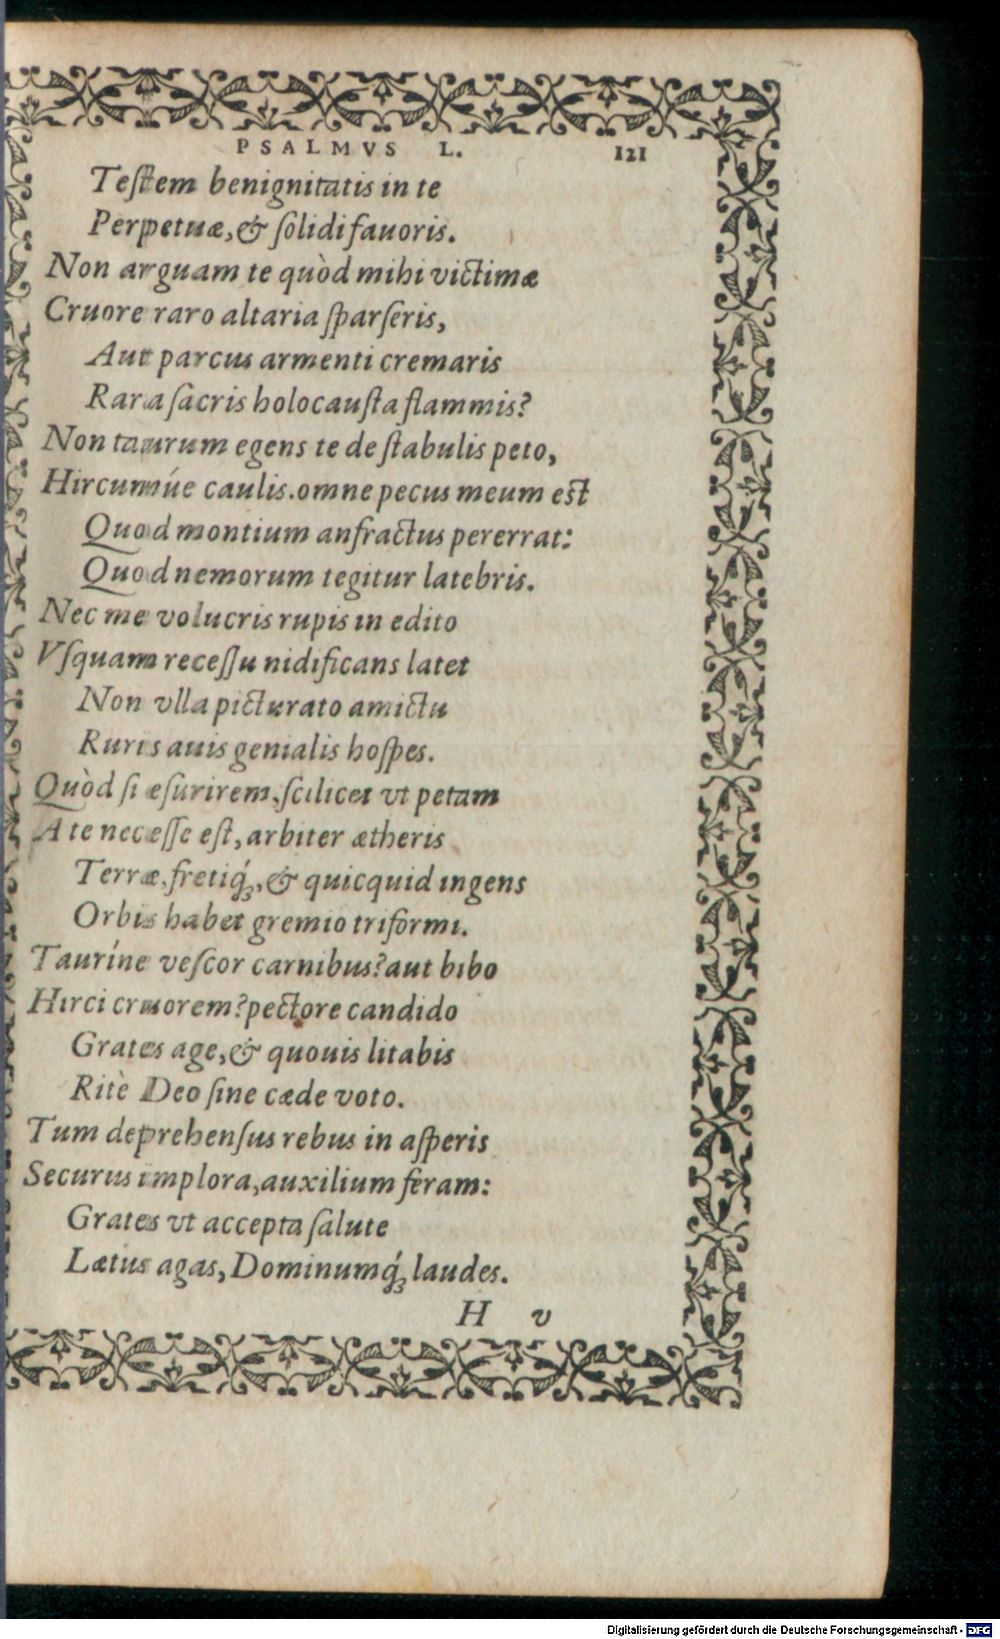 PSALMVS L. 121
Teſtem benignitatis in te
Perpetuæ, & ſolidi fauoris.
Non arguam te quòd mihi victimæ
Cruore raro altaria ſparſeris,
Aut parcus armenti cremaris
Rara ſacris holocauſta flammis?
Non taurum egens te de ſtabulis peto,
Hircumúe caulis. omne pecus meum eſt
Quod montium anfractus pererrat:
Quod nemorum tegitur latebris.
Nec me volucris rupis in edito
Vſquam receſſu nidificans latet
Non vlla picturato amictu
Ruris auis genialis hoſpes.
Quòd ſi eſurirem, ſcilicet vt petam
A te neceſſe eſt, arbiter ætheris
Terræ, fretiq́;, & quicquid ingens
Orbis habet gremio triformi.
Tauríne veſcor carnibus? aut bibo
Hirci cruorem? pectore candido
Grates age, & quouis litabis
Ritè Deo ſine cæde voto.
Tum deprehenſus rebus in aſperis
Securus implora, auxilium feram:
Grates vt accepta ſalute
Lætus agas, Dominumq́; laudes.
H v
Digitalisierung gefördert durch die Deutsche Forschungsgemeinschaft - DFG